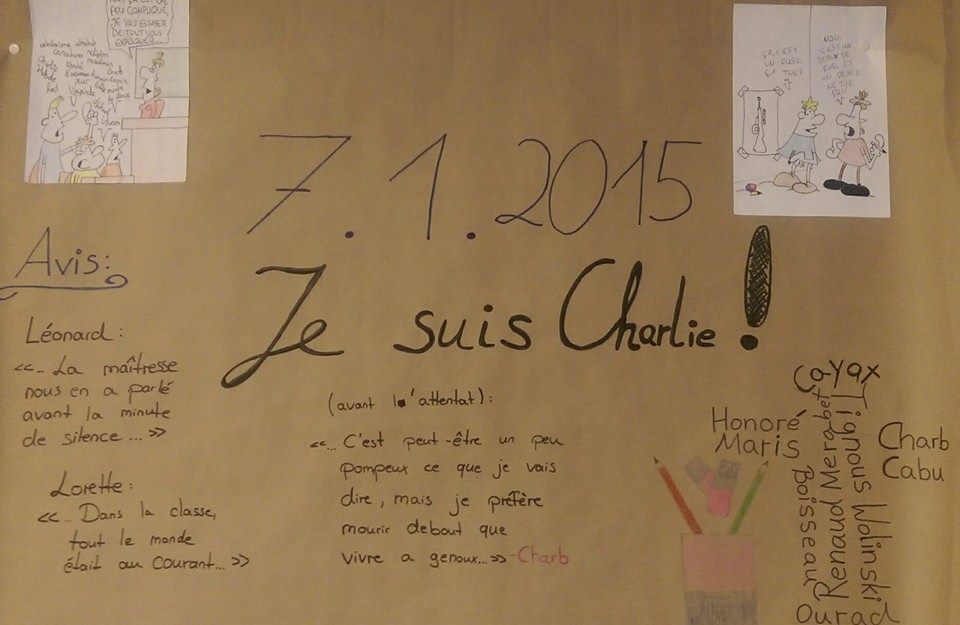 PEU COMPLIQUÉ,
JE VAIS ESSAYER
DE TOUT VOUS
EXPLIQUER...
ÇA, C'EST
UN FUSIL.
ÇA TUE!
NON,
C'EST UN
DESSIN DE
FUSIL ET
UN DESSIN
NE TUE
PAS!
7.1.2015
Je suis Charlie!
Avis:
Léonard:
«... La maîtresse
nous en a parlé
avant la minute
de silence...»
Lorette:
«... Dans la classe,
tout le monde
était au courant...»
(avant l'attentat):
«... C'est peut-être un peu
pompeux ce que je vais
dire, mais je préfère
mourir debout que
vivre a genoux...» -Charb
Honoré
Maris
Cayax
Tibnous Walinski
Renaud Merabet
Boisseau
Ourad
Charb
Cabu